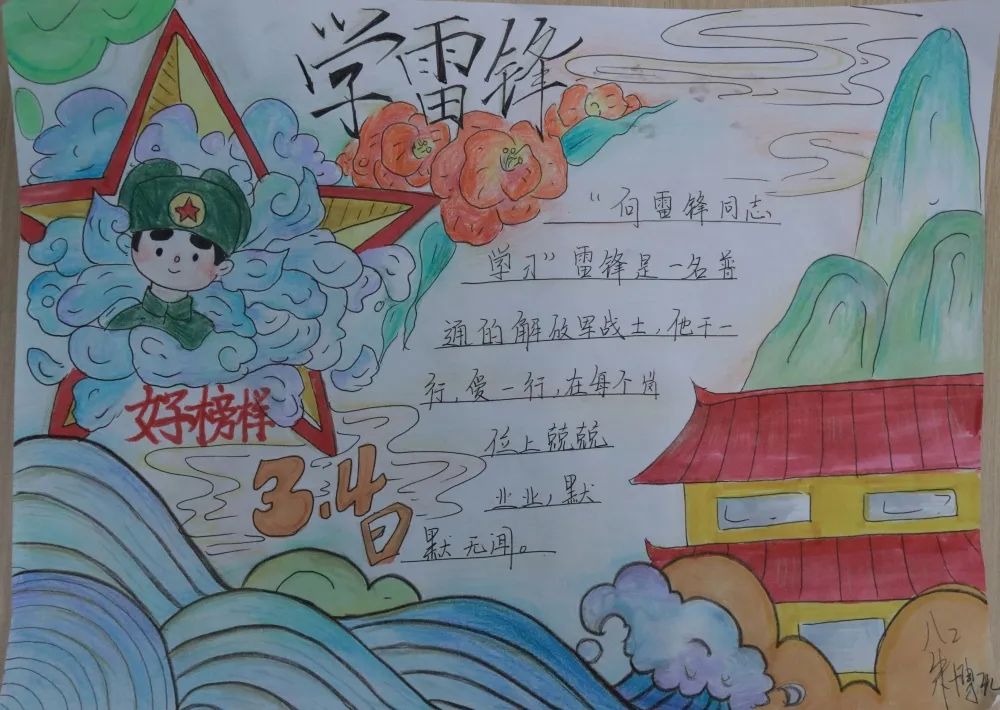 学雷锋
“向雷锋同志
学习”雷锋是一名普
通的解放军战士,他干一
行,爱一行,在每个岗
位上兢兢
业业,默
默无闻。
好榜样
3.4日
八2